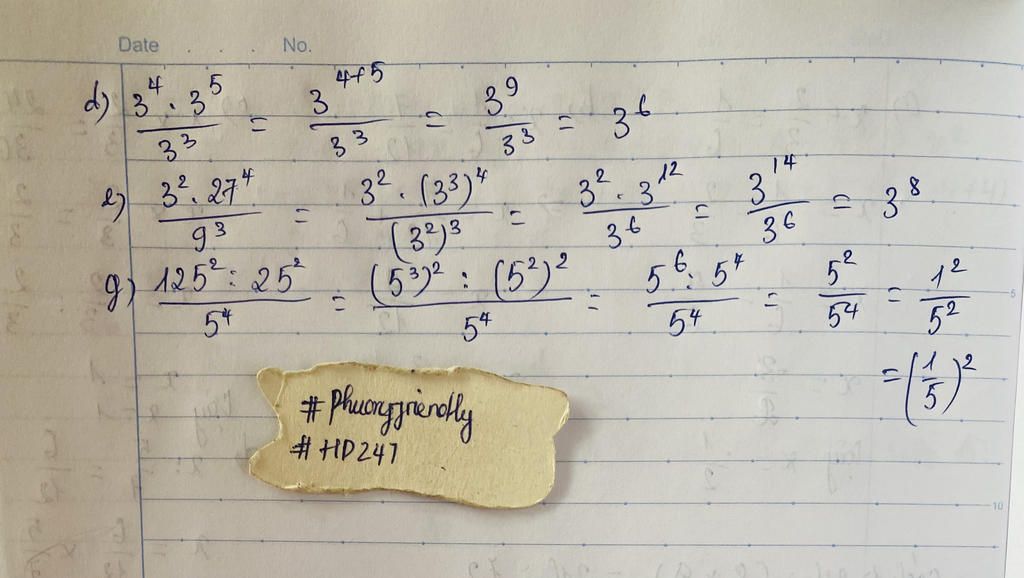 Date . . . No.
d) 3⁴ · 3⁵ / 3³ = 3⁴⁺⁵ / 3³ = 3⁹ / 3³ = 3⁶
e) 3² · 27⁴ / 9³ = 3² · (3³)⁴ / (3²)³ = 3² · 3¹² / 3⁶ = 3¹⁴ / 3⁶ = 3⁸
g) 125² : 25² / 5⁴ = (5³)² : (5²)² / 5⁴ = 5⁶ : 5⁴ / 5⁴ = 5² / 5⁴ = 1² / 5²
5
= (1/5)²
# Phuongfriendly
# HD247
10